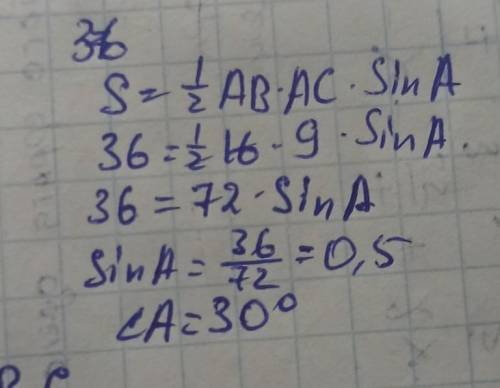 36
S = 1/2 AB · AC · Sin A
36 = 1/2 16 · 9 · Sin A.
36 = 72 · Sin A
Sin A = 36/72 = 0,5
∠A = 30°